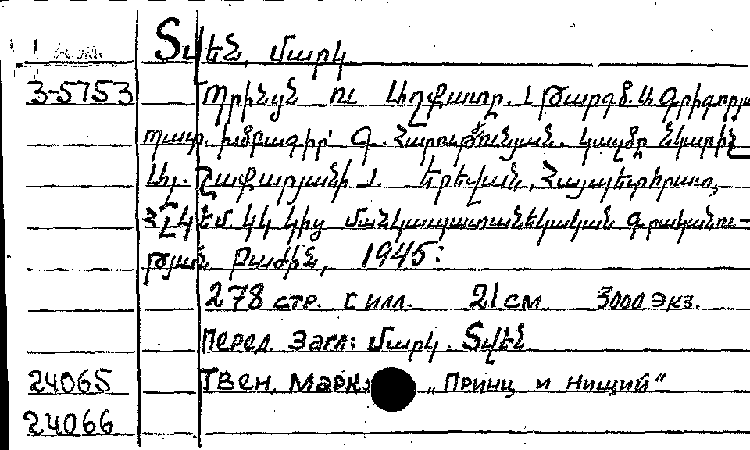 Տվեն, Մարկ
3-5753 Պրինցն ու Աղքատը. / Թարգմ. Ա. Գրիգորյա
պատ. խմբագիր՝ Գ. Հարությունյան. կազմը նկարիչ
Ալ. Շաքարյանի /. Երեվան, Հայպետհրատ,
ՀԼԿԵՄ ԿԿ կից մանկապատանեկական գրականու-
թյան բաժին, 1945:
278 стр. с илл. 21 см 3000 экз.
Перед. Загл: Մարկ. Տվեն
24065 Твен. Марк. „Принц и нищий"
24066